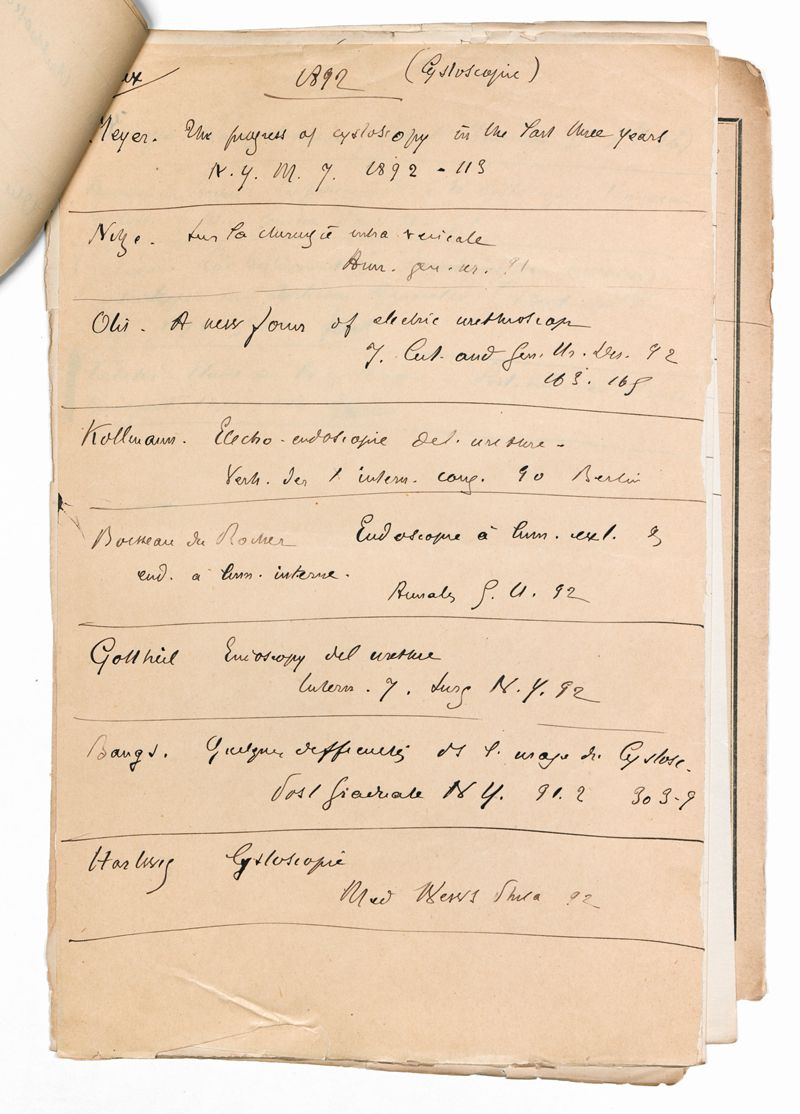 1892 (Cystoscopie)
Meyer. The progress of cystoscopy in the last three years
N. Y. M. J. 1892 - 113
Nitze. Sur la chirurgie intra vesicale
Ann. gen. ur. 91
Otis. A new form of electric urethroscope
J. Cut. and Gen. Ur. Dis. 92
163. 165
Kollmann. Electro-endoscopie del. urethre -
Verh. des intern. cong. 90 Berlin
Boisseau du Rocher Endoscopie à lum. ext. &
end. a lum. interne.
Annales G. U. 92
Gottheil Endoscopy del urethre
Intern. J. Surg N. Y. 92
Bangs. Quelques difficultés ds l'usage du Cystosc.
Post Graduate N Y. 91.2 303-9
Hartwig Cystoscopie
Med News Phila 92